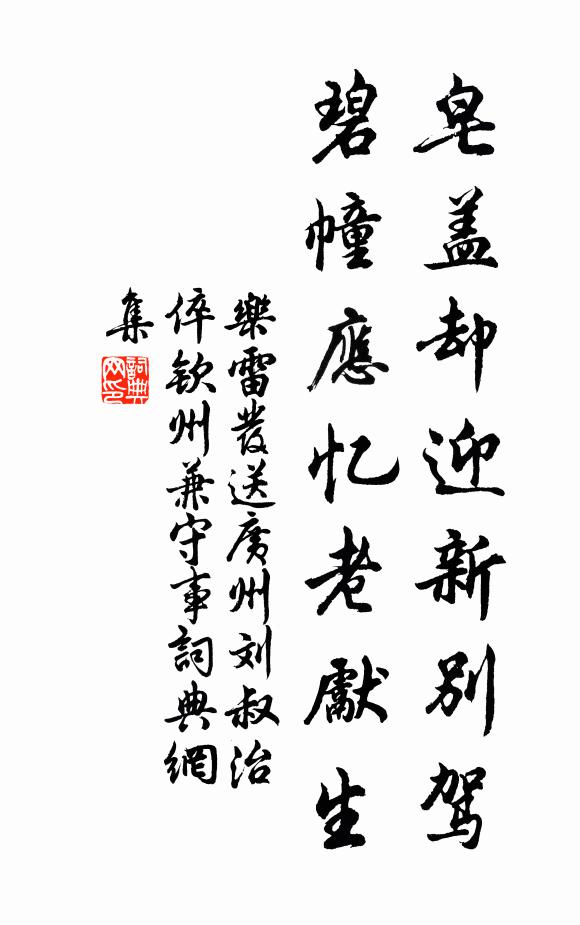 皂盖却迎新别驾
碧幢應忆老獻生
樂雷發送廣州刘叔治
倅欽州兼守事詞典網
集
詞典
网印